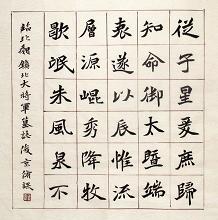 從子里庶歸
知命御太暨端
袁遂以辰惟流
層源崐秀降牧
歌泯朱風泉不
臨北朝鎮北大將軍墓誌